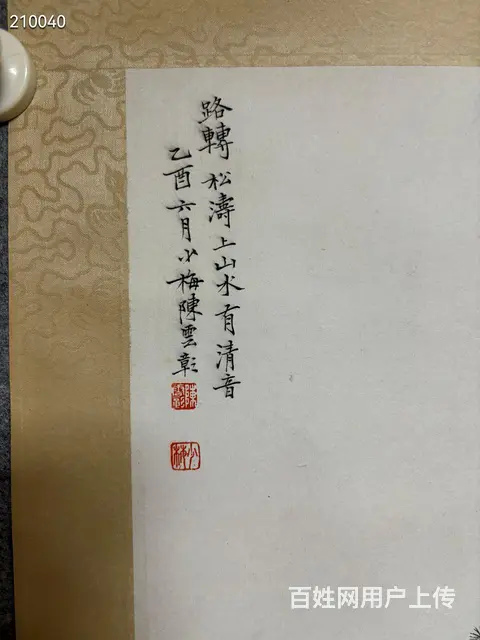 210040
路轉松濤上山水有清音
乙酉六月少梅陳雲彰
陳雲彰
少梅
百姓网用户上传